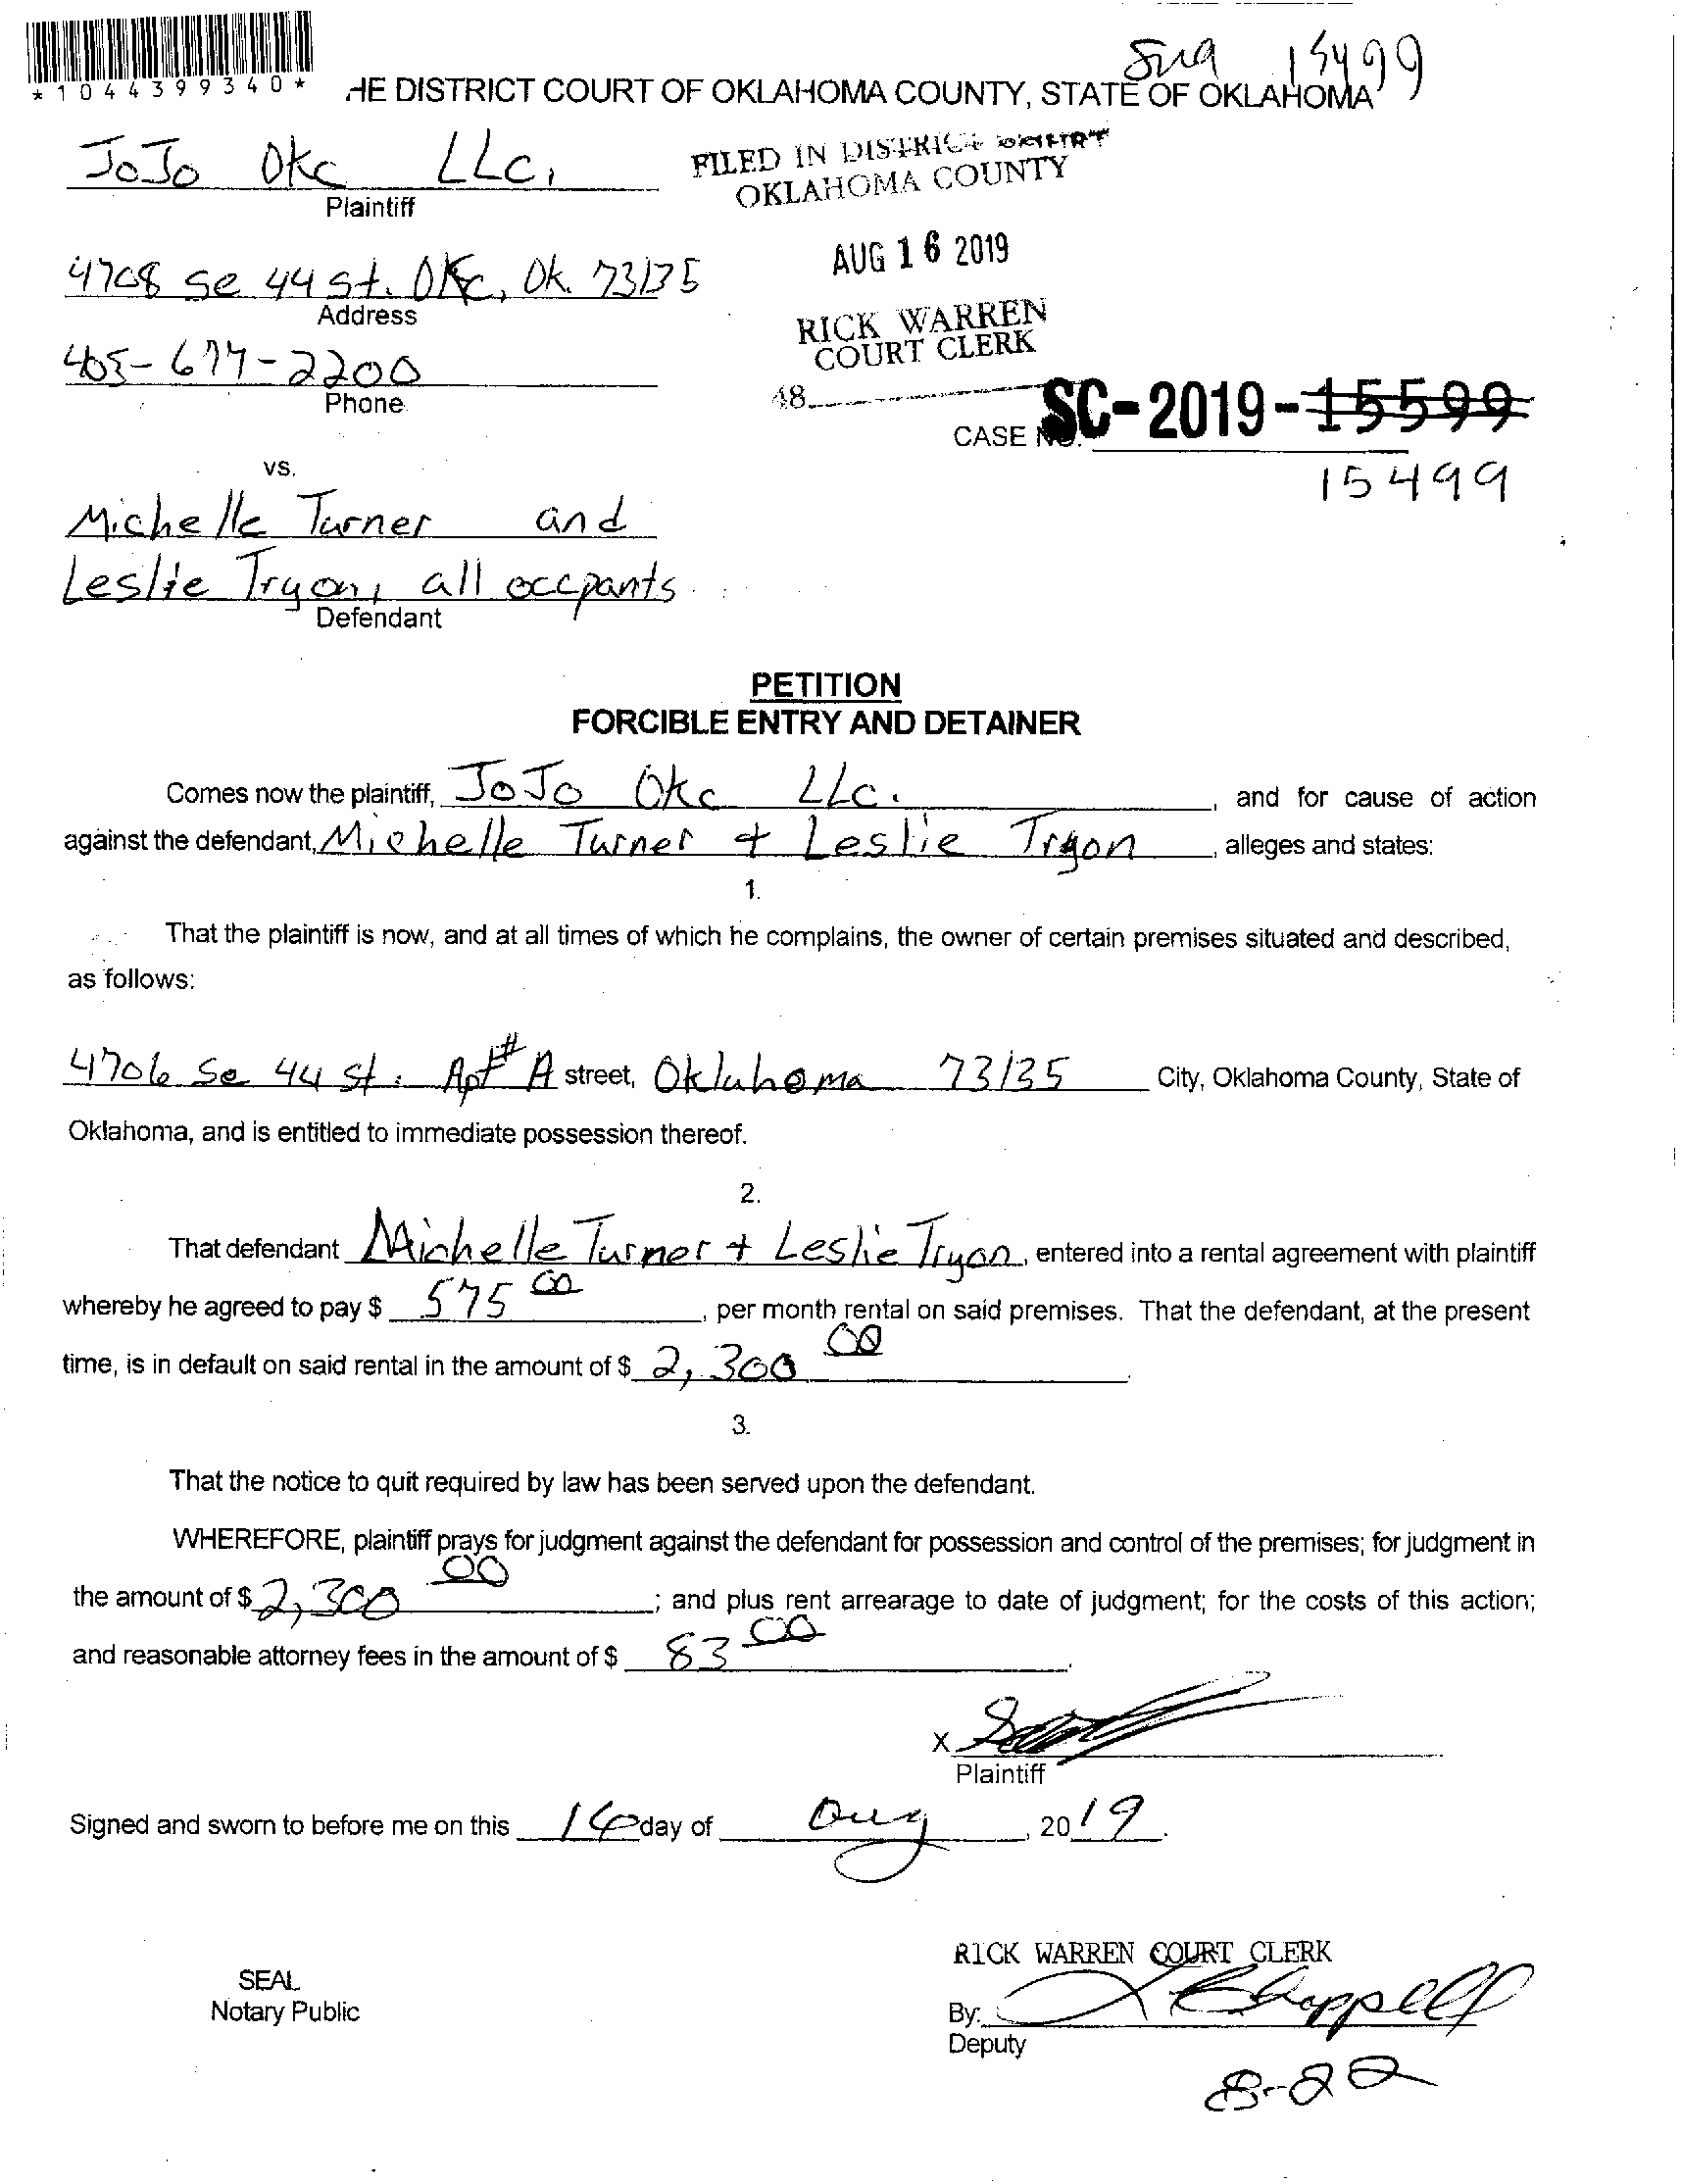 *1044399340*
HE DISTRICT COURT OF OKLAHOMA COUNTY, STATE OF OKLAHOMA
15499
JoJo Okc LLC,
Plaintiff
FILED IN DISTRICT COURT
OKLAHOMA COUNTY
AUG 16 2019
RICK WARREN
COURT CLERK
48
4708 Se 44 St. OKC, Ok. 73135
Address
405-677-2200
Phone
CASE NO. SC-2019-15599
15499
vs.
Michelle Turner and
Leslie Tryon, all occpants
Defendant
PETITION
FORCIBLE ENTRY AND DETAINER
Comes now the plaintiff, JoJo Okc LLc. , and for cause of action
against the defendant, Michelle Turner + Leslie Tryon , alleges and states:
1.
That the plaintiff is now, and at all times of which he complains, the owner of certain premises situated and described,
as follows:
4706 Se 44 st. Apt# A street, Oklahoma 73135 City, Oklahoma County, State of
Oklahoma, and is entitled to immediate possession thereof.
2.
That defendant Michelle Turner + Leslie Tryon , entered into a rental agreement with plaintiff
whereby he agreed to pay $ 575 00 , per month rental on said premises. That the defendant, at the present
time, is in default on said rental in the amount of $ 2,300 00 .
3.
That the notice to quit required by law has been served upon the defendant.
WHEREFORE, plaintiff prays for judgment against the defendant for possession and control of the premises; for judgment in
the amount of $ 2,300 00 ; and plus rent arrearage to date of judgment; for the costs of this action;
and reasonable attorney fees in the amount of $ 83 00 .
X
Plaintiff
Signed and sworn to before me on this 16 day of Aug , 2019.
RICK WARREN COURT CLERK
SEAL
Notary Public
By: Chappell
Deputy
8-22